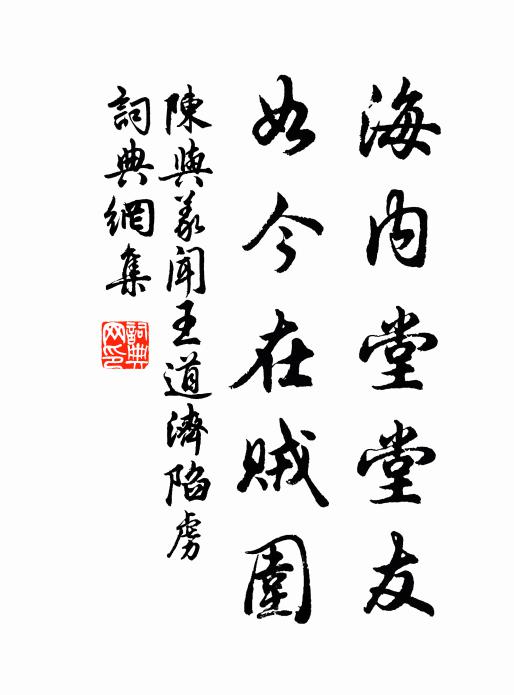 海内堂堂友
如今在賊圍
陳與義聞王道濟陷虜
詞典網集
詞典網印